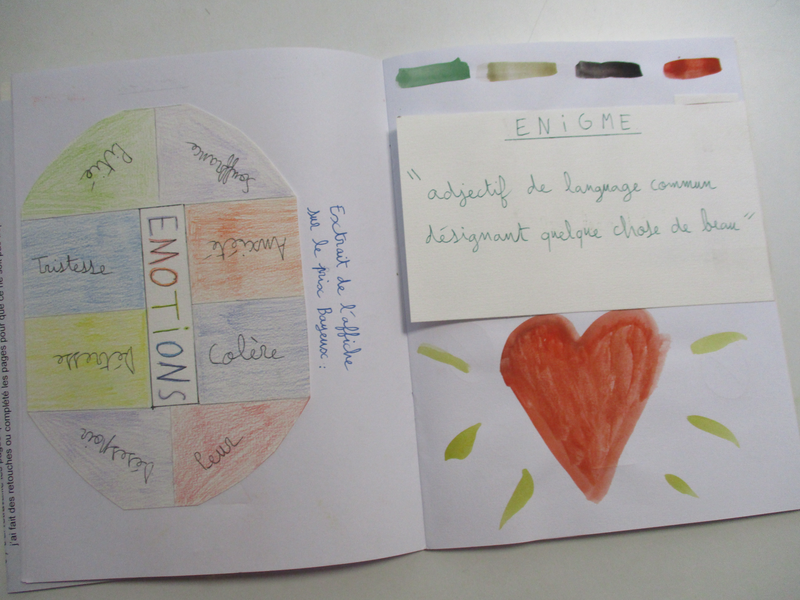 j'ai fait des retouches ou complété les pages pour que ce ne soit pas
Pitié
Souffrance
Tristesse
Anxiété
EMOTIONS
Détresse
Colère
désespoir
Peur
Extrait de l'affiche
sur le prix Bayeux :
ENiGME
"adjectif de language commun
désignant quelque chose de beau"